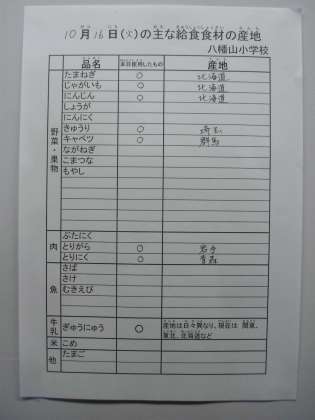 10月16日(火)の主な給食食材の産地
八幡山小学校
品名 本日使用したもの 産地
野菜・果物
たまねぎ ○ 北海道
じゃがいも ○ 北海道
にんじん ○ 北海道
しょうが
にんにく
きゅうり ○ 埼玉
キャベツ ○ 群馬
ながねぎ
こまつな
もやし
肉
ぶたにく
とりがら ○ 岩手
とりにく ○ 青森
魚
さば
さけ
むきえび
牛乳 ぎゅうにゅう ○ 産地は日々異なり、現在は 関東、
東北、北海道など
米 こめ
他 たまご